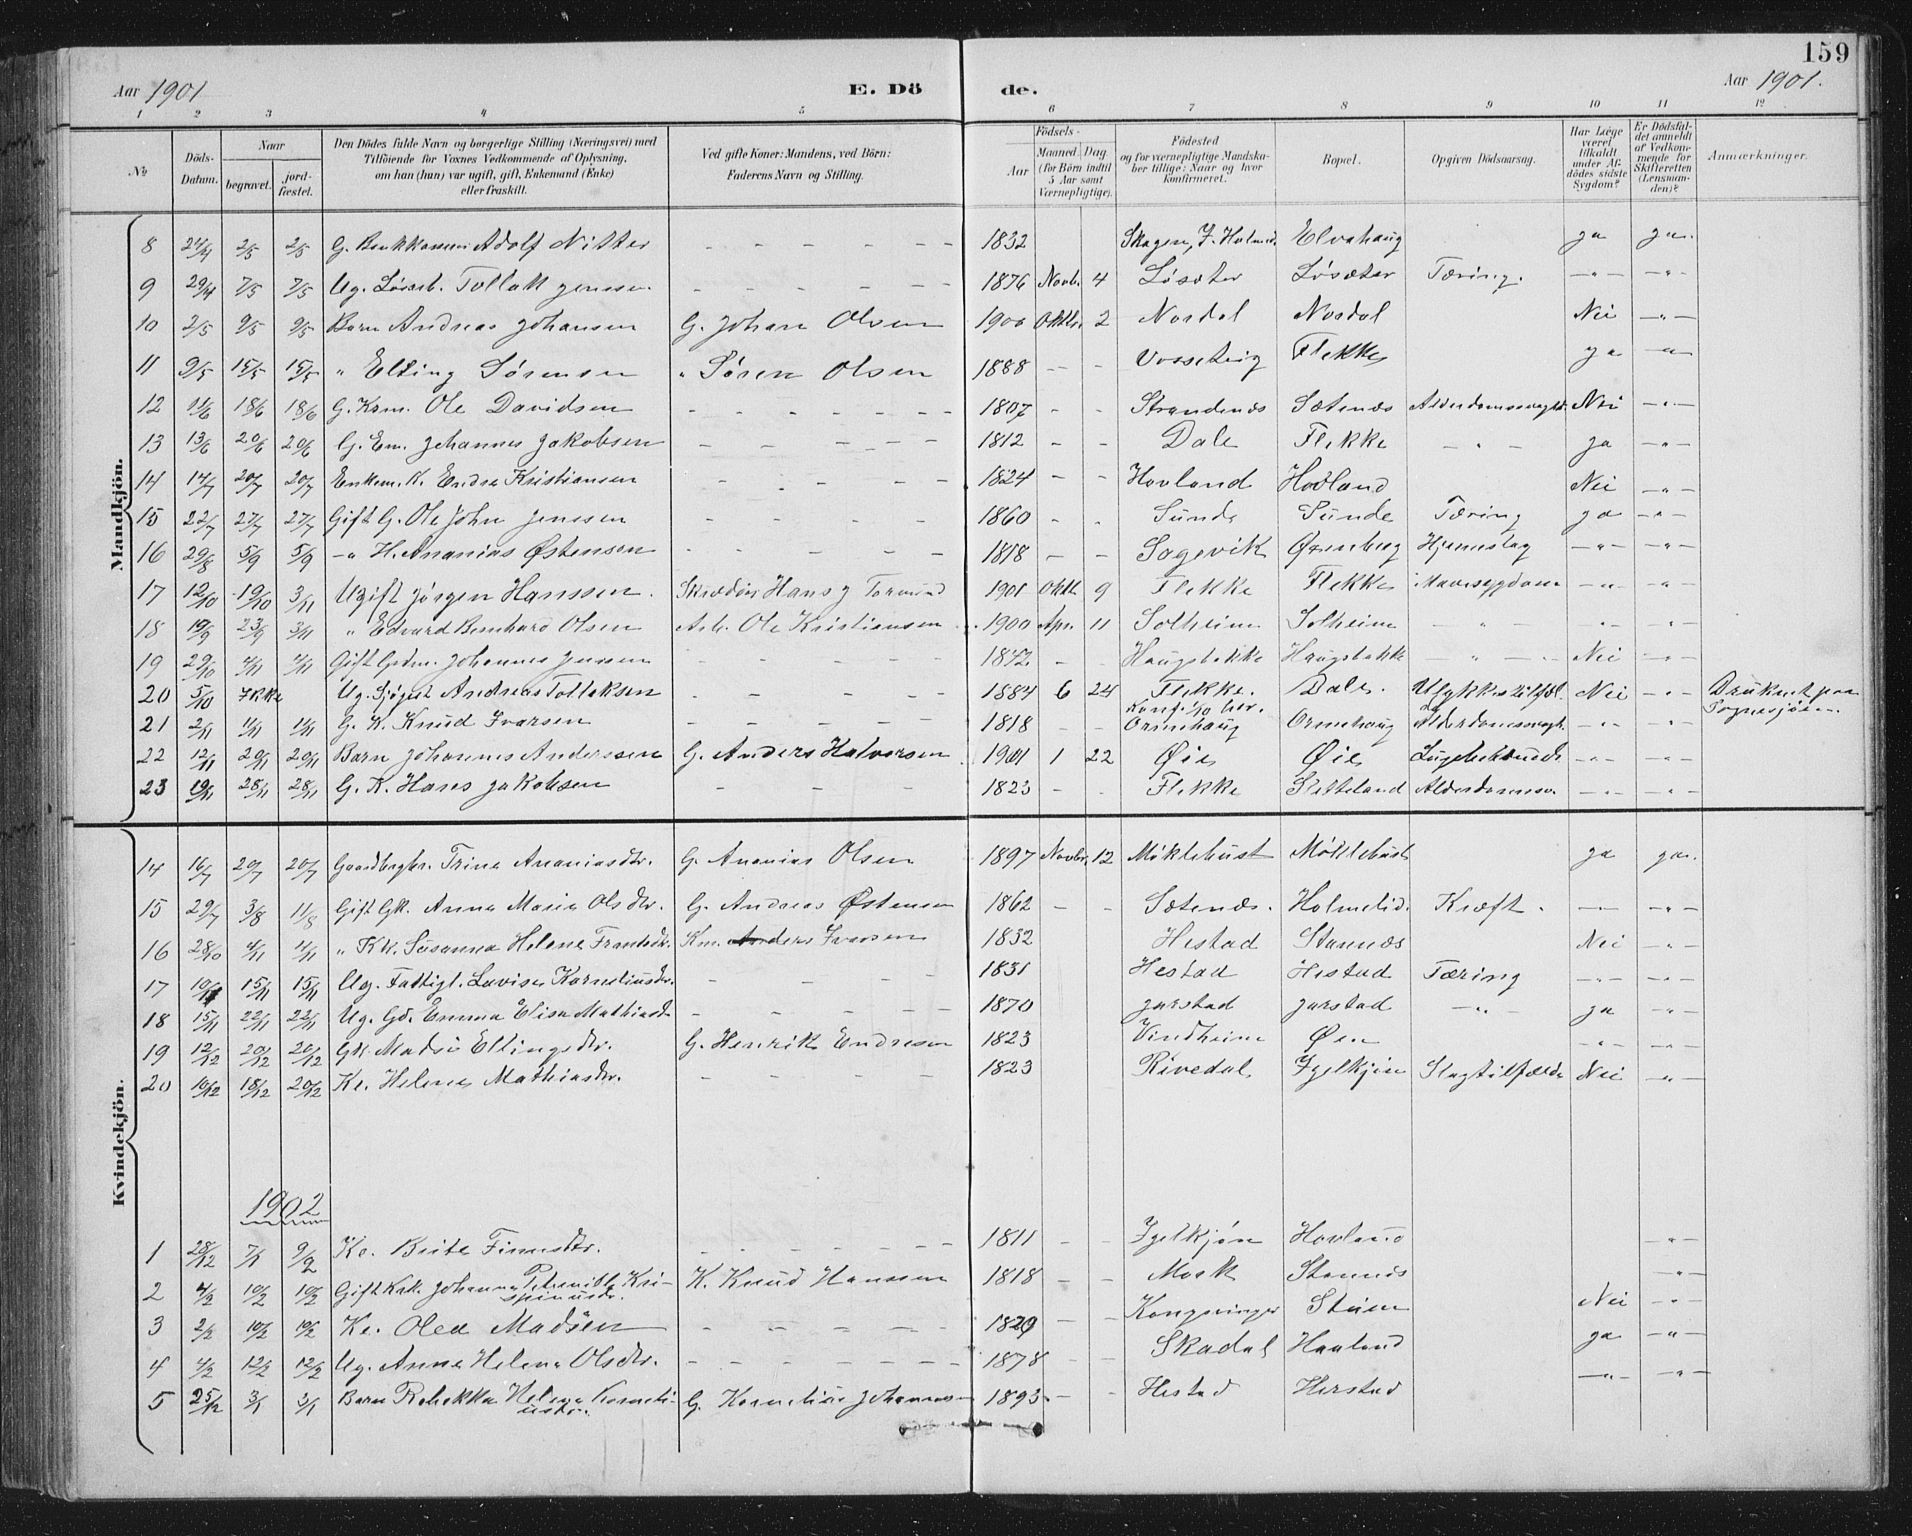 159
Aar 1901 E. Dö de. Aar 1901.
1 2 3 4 5 6 7 8 9 10 11 12
No
Döds-Datum.
Naar
begravet.
jord-fæstet.
Den Dödes fulde Navn og borgerlige Stilling (Næringsvei) med
Tilföiende for Voxnes Vedkommende af Oplysning,
om han (hun) var ugift, gift, Enkemand (Enke)
eller fraskilt.
Ved gifte Koner: Mandens, ved Börn:
Faderens Navn og Stilling.
Födsels-
Aar
Maaned. Dag.
(for Börn indtil
5 Aar samt
Værnepligtige).
Födested
og for værnepligtige Mandska-
ber tillige: Naar og hvor
konfirmeret.
Bopæl.
Opgiven Dödsaarsag.
Har Læge
været
tilkaldt
under Af-
dödes sidste
Sygdom?
Er Dödsfal-
det anmeldt
af Vedkom-
mende for
Skifteretten
(Lensman-
den)?
Anmærkninger.
Mandkjön.
8 24/4 2/5 2/5 G. Adolf Nitter - - - 1832 Skagen, Elvahaug ja ja.
9 29/4 7/5 7/5 Ug. Tollak Jenssen - - - 1876 Novb. 4 Løsæter Løsæter Tæring. -"- -"-
10 2/5 9/5 9/5 Barn Andreas Johansen G. Johan Olsen 1900 Oktbr. 2 Nordal Nordal Nei -"-
11 9/5 15/5 15/5 " Elling Sørensen " Søren Olsen 1888 - - Vosseteig Flekke ja -"-
12 11/6 18/6 18/6 G. Krm. Ole Davidsen - - - 1807 - - Strandenæs Sætenæs Nei -"-
13 13/6 20/6 20/6 G. Em. Johannes Jakobsen - - - 1812 - - Dale Flekke - " - ja -"-
14 14/7 20/7 20/7 Enkem. K. Endre Kristiansen - - - 1824 - - Hovland Hovland Nei -"-
15 22/7 27/7 27/7 Gift G. Ole John Jenssen - - - 1860 - - Sunde Sunde Tæring ja -"-
16 29/8 5/9 5/9 -" H. Ananias Østensen - - - 1818 - - Sagevik Hjerneslag -"- -"-
17 12/10 19/10 3/11 Ugift Jørgen Hanssen. Hans J Tormund 1901 Oktb. 9 Flekke Flekke Mavesygdom -"- -"-
18 19/9 23/9 3/11 " Edvard Bernhard Olsen Arb. Ole Kristiansen 1900 Apr. 11 Solheim Solheim - " - -"- -"-
19 29/10 4/11 4/11 Gift Johannes Jenssen - - - 1842 - - Haugsbakke Haugsbakke - " - Nei -"-
20 5/10 Ikke Ug. Sjøgut Andreas Tolleksen - - - 1884 6 24 Flekke. Dale. Ulykkestilfæl. Nei -"- Druknet paa
Konf. 1/10 her. Sognesjøen
21 2/11 11/11 11/11 G. K. Knud Ivarsen - - - 1818 - - Ormehaug Ormehaug -"- -"-
22 12/11 20/11 20/11 Barn Johannes Anderssen G. Anders Halvorsen 1901 1 22 Øie Øie -"- -"-
23 19/11 28/11 28/11 G. K. Hans Jakobsen - - - 1823 - - Flekke Sletteland Alderdomssv -"- -"-
Kvindekjön.
14 16/7 20/7 20/7 Trine Ananiasdtr. G. Ananias Olsen 1897 Novbr. 12 Møklebust Møklebust ja ja.
15 29/7 3/8 11/8 Gift Gk. Anna Maria Olsdtr. G. Andreas Østensen 1862 - - Sætenæs. Holmelid. Kræft. -"- -"-
16 28/10 4/11 4/11 " Kk. Susanna Helene Km. Anders Ivarsen 1832 Hestad Stannæs Nei -"-
17 10/11 15/11 15/11 Ug. Fattigl. Lovise Korneliusdtr. - - - 1831 Hestad Hestad Tæring -"- -"-
18 15/11 22/11 22/11 Ug. Gd. Emma Elisa Mathiasd. - - - 1870 Jarstad Jarstad -"- ja -"-
19 12/12 20/12 20/12 Gk. Madsi Ellingsdtr. G. Henrik Endresen 1823 Vindheim Øen -"- -"-
20 10/12 18/12 20/12 Ke. Helene Mathiasdtr. - - - 1823 Rivedal Igelkjøn Slagtilfælde Nei -"-
1902
1 28/12 7/1 9/2 Ke. Brite Finnsdtr. - - - 1811 - - Igelkjøn Hovland -"-
2 4/2 10/2 10/2 Gift Kek. Johanna Petrnille Kri-
spinusdr. K. Knud Hanssen 1818 - - Mork Stannæs -"-
3 2/2 10/2 10/2 Ke. Olea Madsen - - - 1829 Kongsvinger Steien Nei -"-
4 4/2 12/2 12/2 Ug. Anne Helene Olsdtr. - - - 1878 - - Skadal Haaland ja -"-
5 25/12 3/1 3/1 Barn Rebekka Helene Korneli-
usdtr. G. Kornelius Johannesen 1893 - - Hestad Herstad -"- -"-